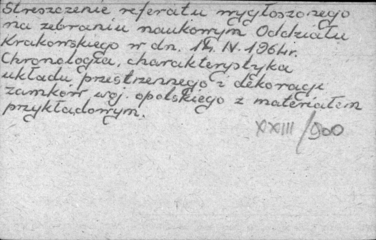 Streszczenie referatu wygłoszonego
na zebraniu naukowym Oddziału
Krakowskiego w dn. 14. IV. 1964r.
Chronologia, charakterystyka
układu przestrzennego i dekoracji
zamków woj. opolskiego z materiałem
przykładowym.
XXIII/900